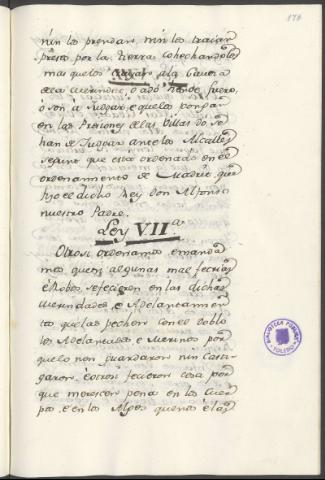 170
nin los prendan, nin los trayan
presos por la tierra cohechandolos
mas que los trayan a la Caveza
de la merindat, o ado
o son a Judgar e que los pongan
en las Presiones de las Villas do se
han de Judgar ante los Alcalles
segunt que esta ordenado en el
ordenamiento de Madrit, que
fizo el dicho Rey Don Alfonso
nuestro Padre.
Ley VII.a
Otrosi ordenamos e manda
mos que si algunas malfetrias
e Robos, se fecieren en las dichas
merindades, e Adelantamien
tos que las pechen con el doblo
los Adelantados e Merinos por
que lo non guardaron nin Casti
garon. e otrosi fecieron cosa por
que merescan pena en los Cuer
pos, e en los Algos que nos e las
BIBLIOTECA PUBLICA
TOLEDO